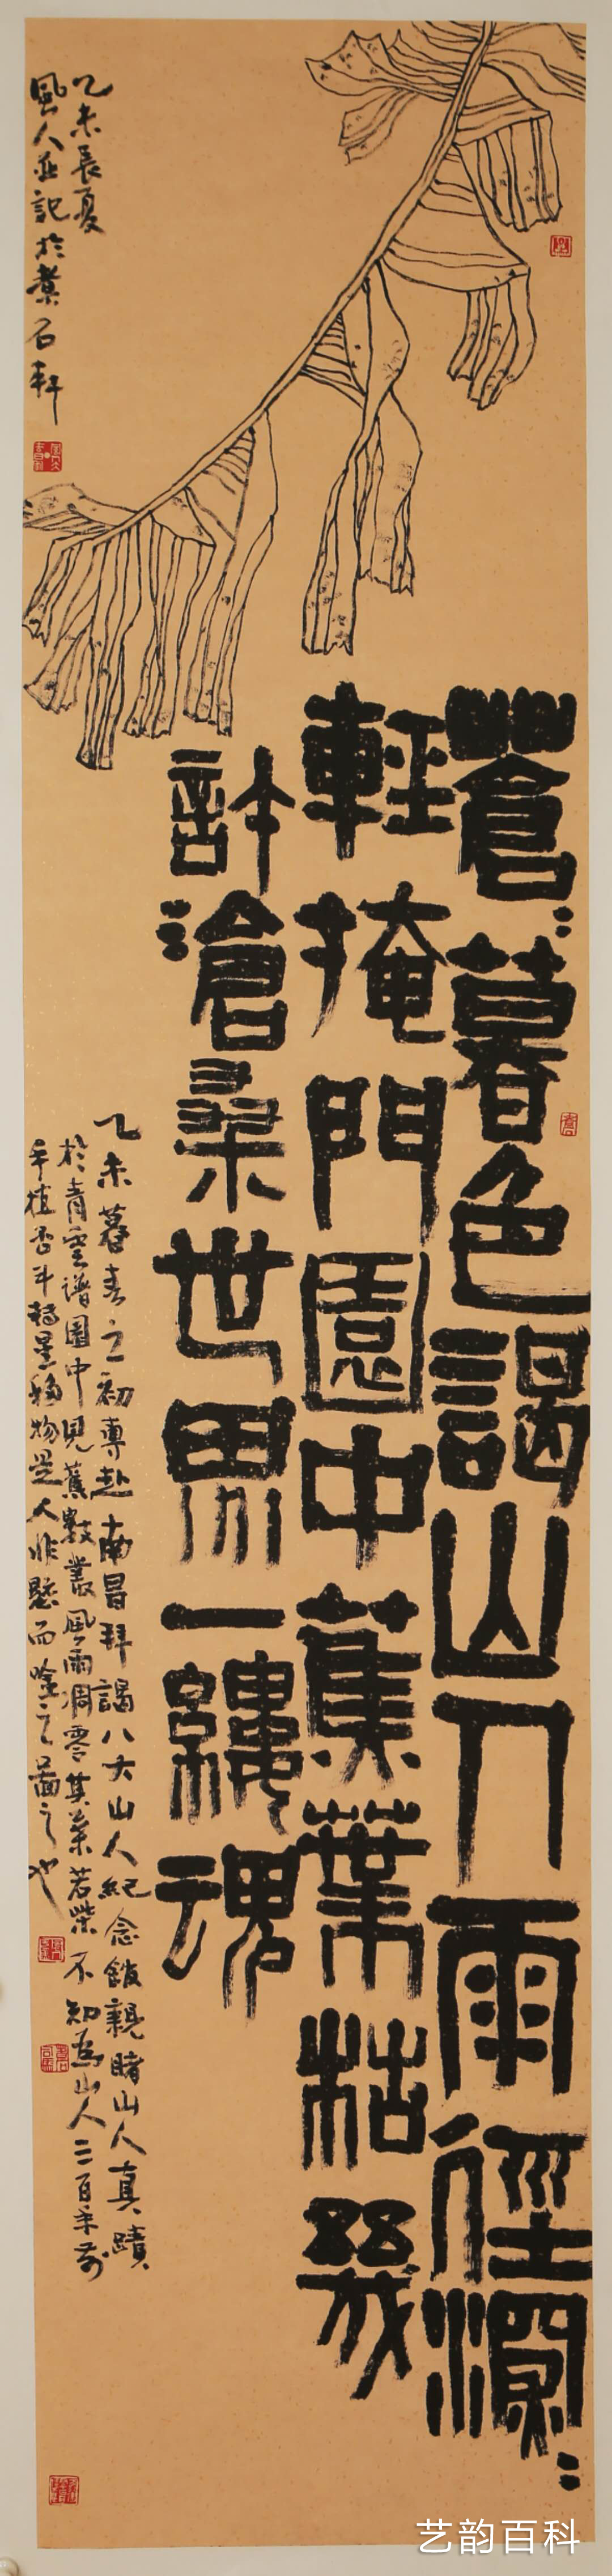 蒼〻暮色謁山人雨徑深〻
輕掩門園中蕉葉枯幾
許滄桑世界一縷魂
乙未暮春之初專赴南昌拜謁八大山人紀念館親睹山人真蹟
於青雲譜園中見蕉數叢風雨凋零其葉若柴不知為山人三百年前
手植否斗轉星移物是人非感而吟之圖之也
乙未長夏
風人並記於煮石軒
艺韵百科